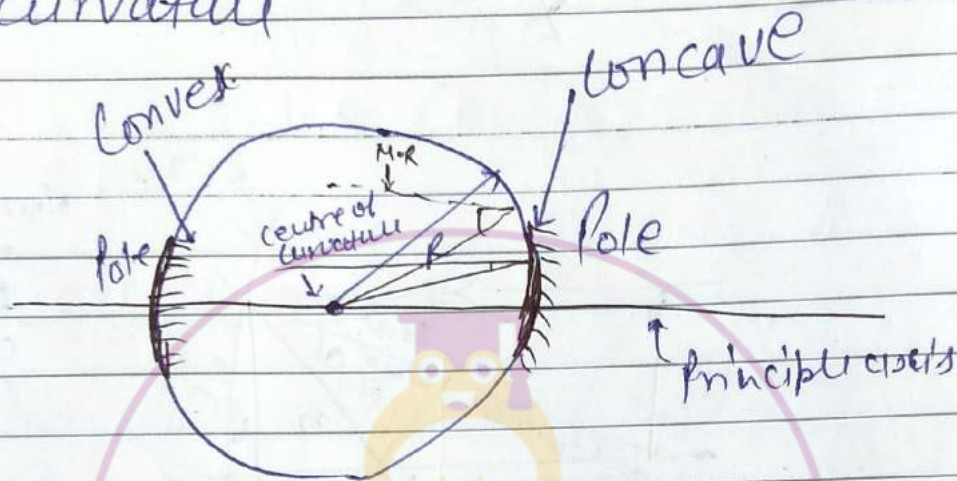 curvature
Convex
Concave
M·R
Pole
centre of
curvature
R
Pole
Principle axis